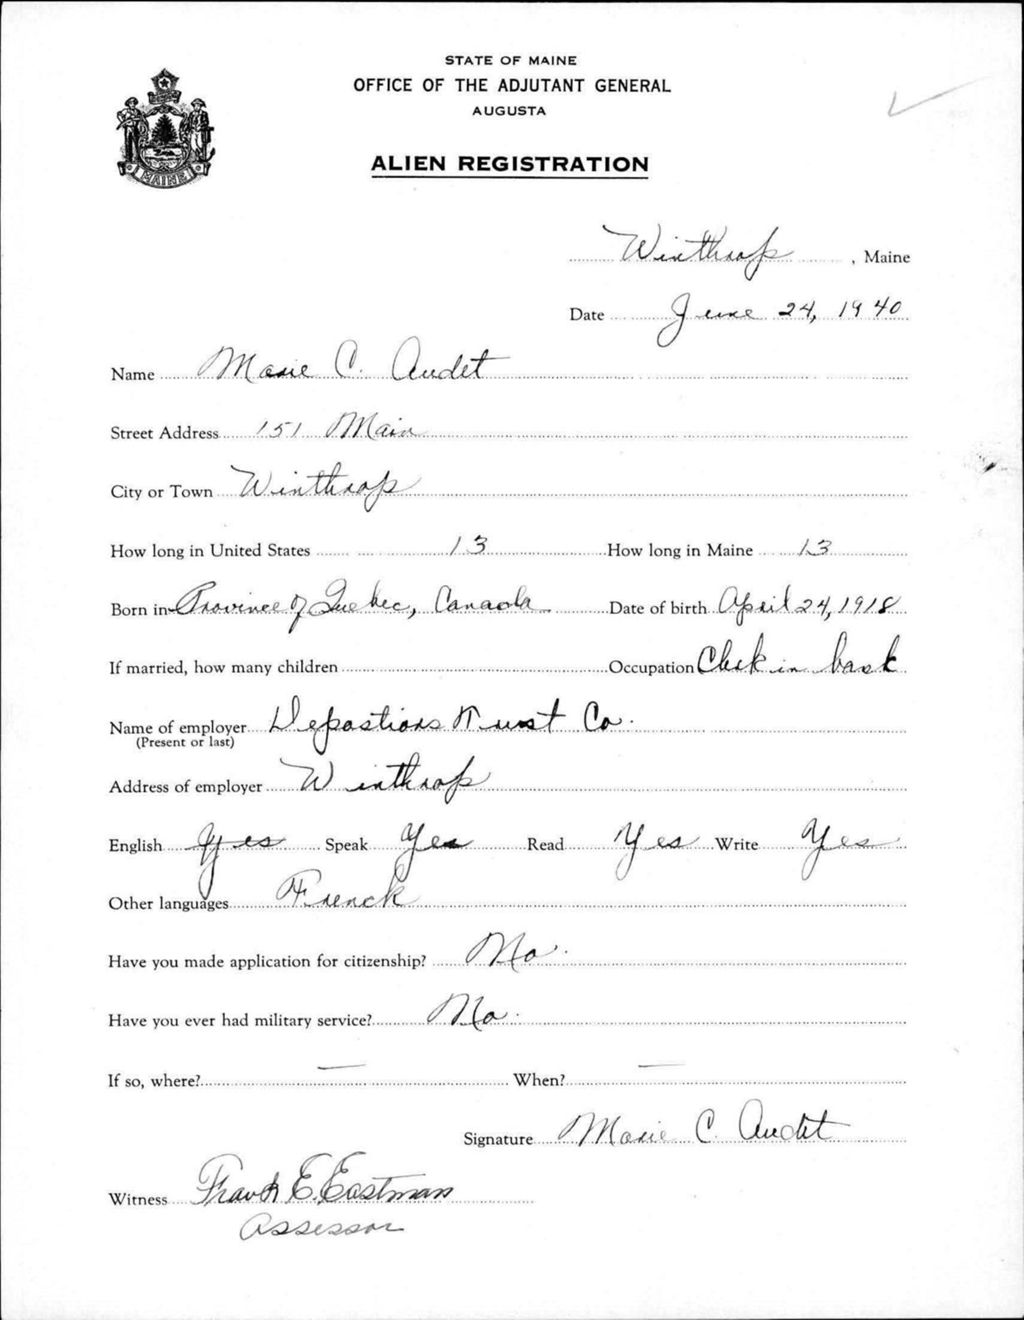 STATE OF MAINE
OFFICE OF THE ADJUTANT GENERAL
AUGUSTA
MAINE
ALIEN REGISTRATION
Winthrop, Maine
Date June 24, 1940
Name Marie C. Audet
Street Address 151 Main
City or Town Winthrop
How long in United States 13 How long in Maine 13
Born in Province of Quebec, Canada Date of birth April 24, 1918
If married, how many children Occupation Clerk in bank
Name of employer Depositors Trust Co.
(Present or last)
Address of employer Winthrop
English Yes Speak Yes Read Yes Write Yes
Other languages French
Have you made application for citizenship? No.
Have you ever had military service? No.
If so, where? — When? —
Signature Marie C. Audet
Witness Frank E. Eastman
Assessor